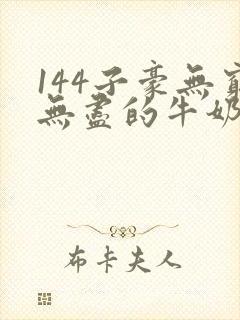 144子豪無窮
無盡的牛奶
布卡夫人